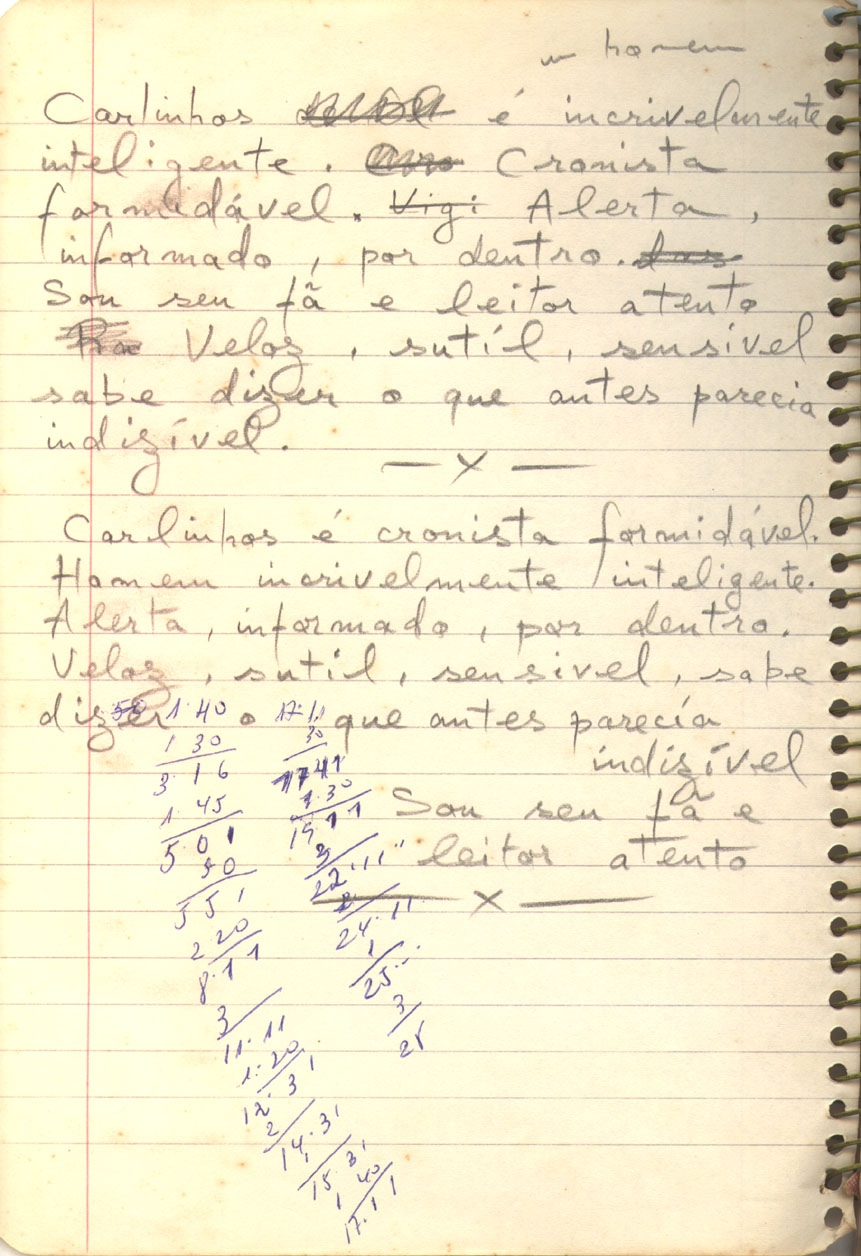 homem
Carlinhos é incrivelmente
inteligente. Cronista
formidável. Vigi Alerta,
informado, por dentro.
Sou seu fã e leitor atento
Veloz, sutíl, sensível
sabe dizer o que antes parecia
indizível.
— x —
Carlinhos é cronista formidável.
Homem incrivelmente inteligente.
Alerta, informado, por dentro.
Veloz, sutil, sensivel, sabe
dizer o que antes parecía
indizível
Sou seu fã e
leitor atento
— x —
1 40
1 30
3 16
1 45
5 01
50
5 51
2 20
8.11
3
11.11
1.20
12.31
2
14.31
15.31
1 40
17.11
17.11
30
1741
1.30
19 11
3
22.11
2
24.11
1
25
3
28